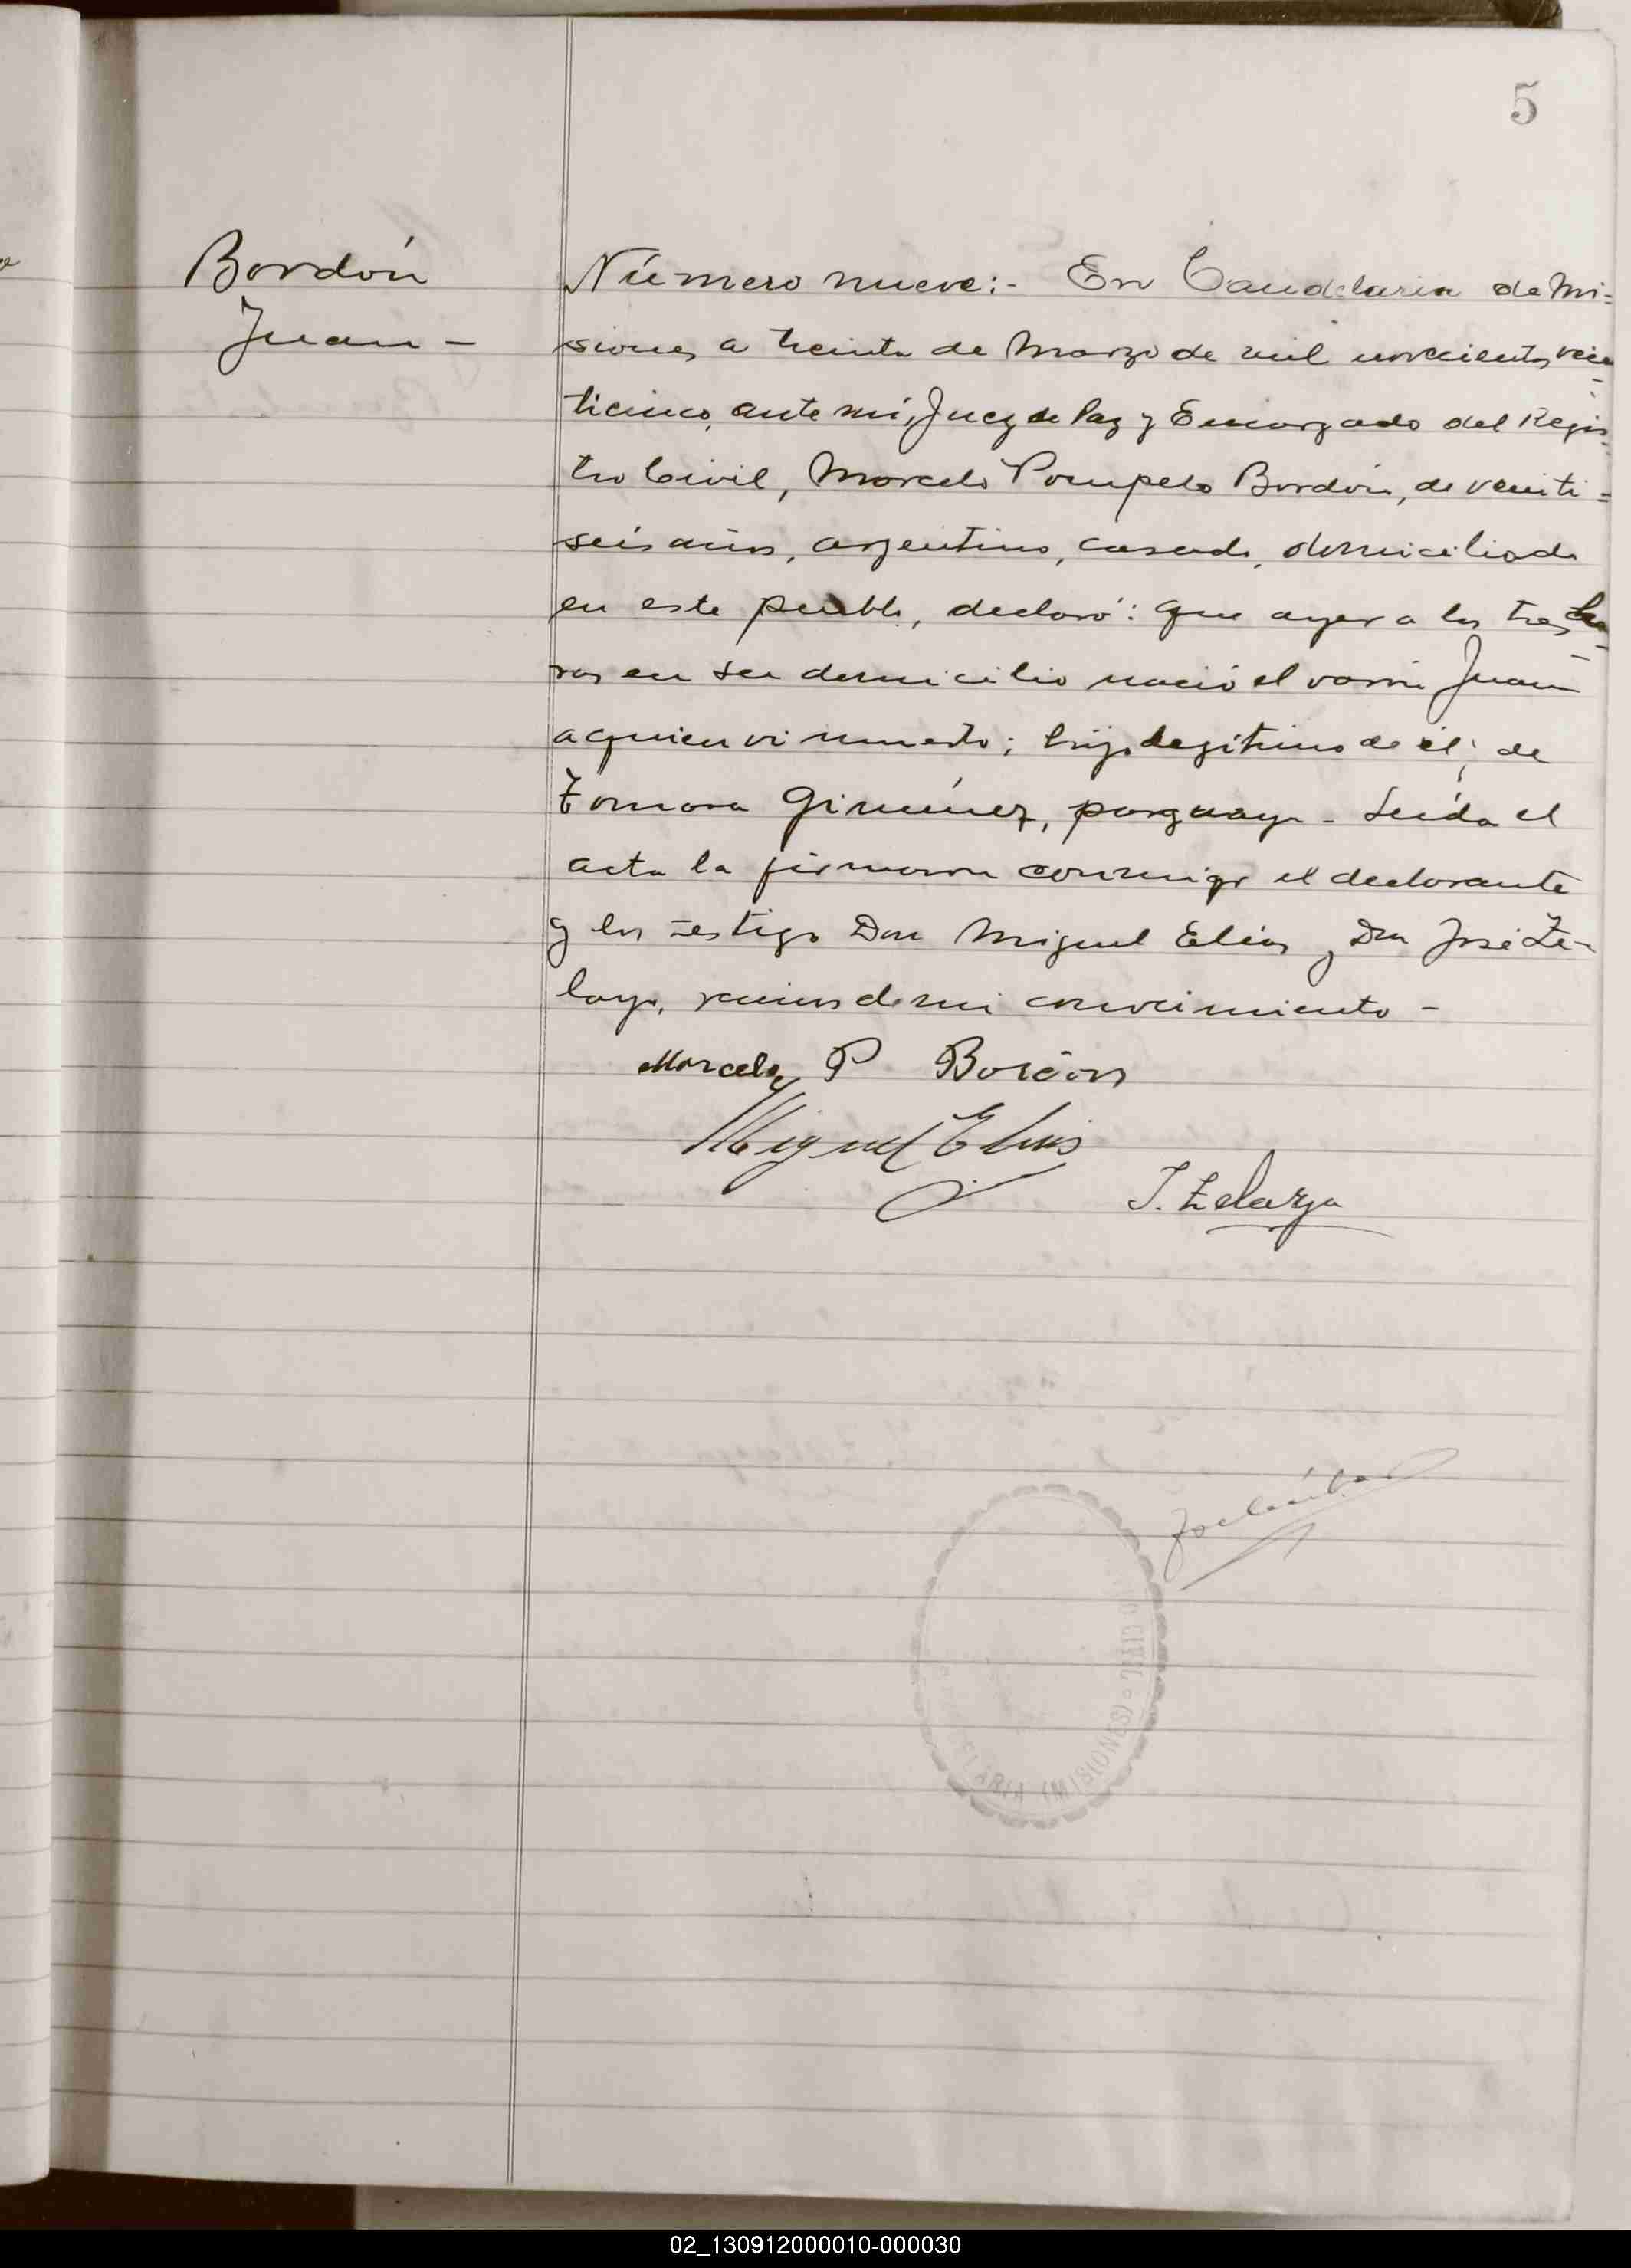 5
Bordón
Juan -
Número nueve:- En Candelaria de Mi=
siones a treinta de Marzo de mil novecientos vein
ticinco, ante mí, Juez de Paz y Encargado del Regis
tro Civil, Marcelo Pompelo Bordón, de veinti=
seis años, argentino, casado, domiciliado
en este pueblo, declaró: que ayer a las tres ho
ras en su domicilio nació el varón Juan
a quien vi muerto; hijo legítimo de él, de
Zomora Giménez, paraguaya - Leída el
acta la firmaron conmigo el declarante
y los testigo Don Miguel Elias y Don José Ze-
laya, vecinos de mi conocimiento -
Marcelo P Bordón
Miguel Elias
J. Zelaya
ELARIA (MISIONES)
CIVIL
02_130912000010-000030